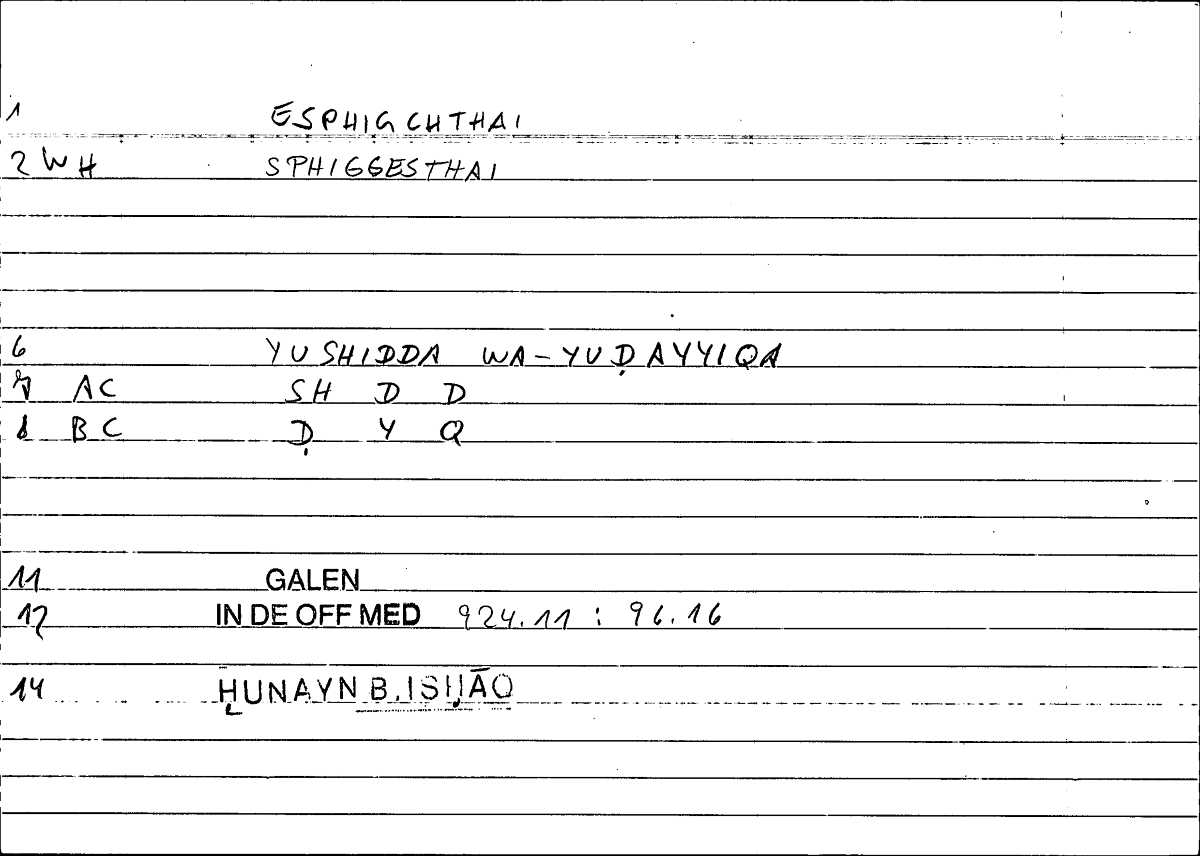 1 ESPHIGCHTHAI
2 WH SPHIGGESTHAI
6 YUSHIDDA WA-YUḌAYYIQA
7 AC SH D D
8 BC Ḍ Y Q
11 GALEN
12 IN DE OFF MED 924.11 : 96.16
14 ḤUNAYN B. ISḤĀQ